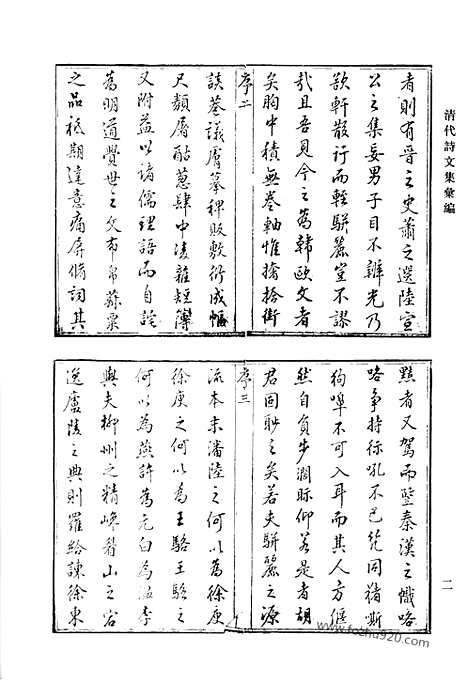 清代詩文集彙編
者則有晋之史蕭之選陸宣
公之集妄男子目不辨光乃
欲軒散行而輕駢麗豈不謬
哉且吾見今之為韓歐文者
矣胸中積無卷軸惟搶拾街
序二
談巷議膚摹稗販敷衍成幅
尺類屠酤蔥肆中淩雜短簿
又附益以諸儒理語而自詫
為明道覺世之文布帛菽粟
之品祗期達意痛屏脩詞其
黠者又駕而暨秦漢之幟咯
咯爭持狋吼不已凭同褚斯
狗嗥不可入耳而其人方傴
然自負步濶眎仰若是者胡
君固耻之矣若夫駢麗之源
序三
流本末潘陸之何以為徐庾
徐庾之何以為王駱王駱之
何以為燕許為元白為溫李
與夫柳州之精峰眉山之宕
逸廬陵之典則羅給諫徐東
二
www.fozhu920.com